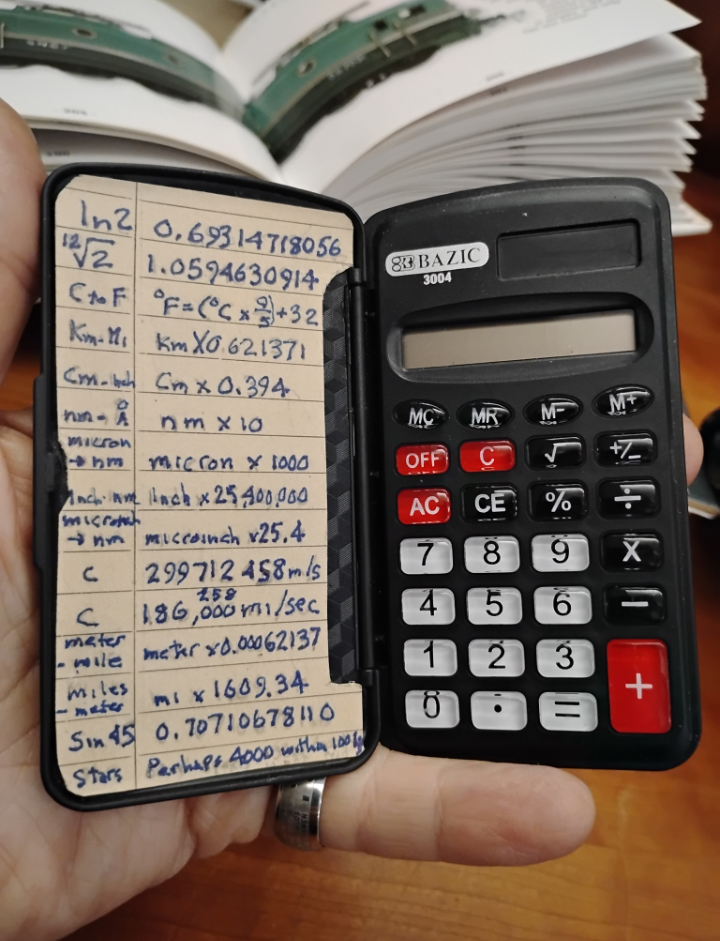 ln2 0.69314718056
12√2 1.0594630914
C to F °F=(°C x 9/5)+32
Km-Mi km X 0.621371
Cm-Inch Cm x 0.394
nm-Å nm x 10
micron → nm micron x 1000
Inch-nm Inch x 25,400,000
microinch → nm microinch x25.4
C 299712458m/s
258
C 186,000 mi/sec
meter - mile meter x0.00062137
miles - meter mi x 1609.34
Sin 45 0.70710678110
Stars Perhaps 4000 within 100ly
BAZIC
3004
MC MR M- M+
OFF C √ +/-
AC CE % ÷
7 8 9 X
4 5 6 −
1 2 3 +
0 · =